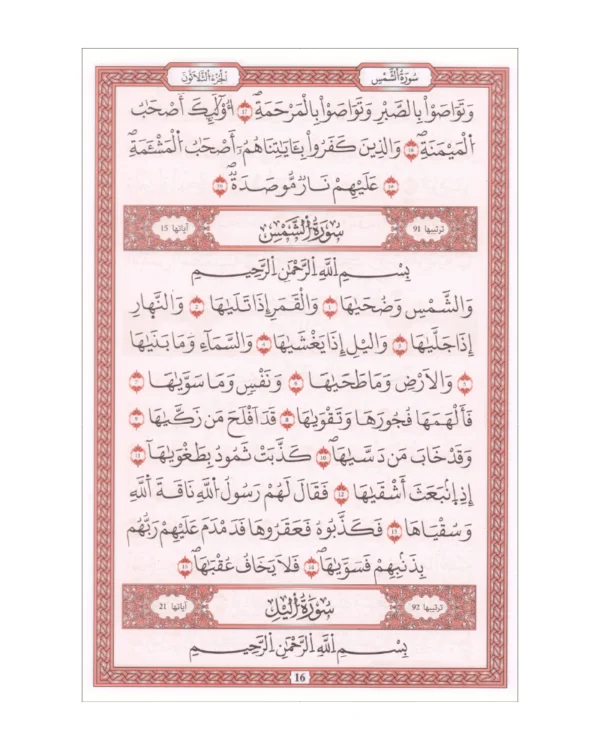 سُورَةُ الشَّمْسِ
الجُزْءُ الثَّلَاثُونَ
وَتَوَاصَوْاْ بِالصَّبْرِ وَتَوَاصَوْاْ بِالْمَرْحَمَةِ 17 أُوْلَٰٓئِكَ أَصْحَٰبُ
اُ۬لْمَيْمَنَةِ 18 وَالذِينَ كَفَرُواْ بِـَٔايَٰتِنَا هُمُۥٓ أَصْحَٰبُ اُ۬لْمَشْـَٔمَةِ
19 عَلَيْهِمْ نَارٌ مُّوصَدَةٌ 20
ترتيبها 91 سُورَةُ الشَّمْسِ آياتها 15
بِسْمِ اِ۬للَّهِ اِ۬لرَّحْمَٰنِ اِ۬لرَّحِيمِ
وَالشَّمْسِ وَضُحَيٰهَا 1 وَالْقَمَرِ إِذَا تَلَيٰهَا 2 وَالنَّهَارِ
إِذَا جَلَّيٰهَا 3 وَاليْلِ إِذَا يَغْشَيٰهَا 4 وَالسَّمَآءِ وَمَا بَنَيٰهَا
5 وَالَارْضِ وَمَا طَحَيٰهَا 6 وَنَفْسٍ وَمَا سَوَّيٰهَا 7
فَأَلْهَمَهَا فُجُورَهَا وَتَقْوَيٰهَا 8 قَدَ اَفْلَحَ مَن زَكَّيٰهَا 9
وَقَدْ خَابَ مَن دَسَّيٰهَا 10 كَذَّبَتْ ثَمُودُ بِطَغْوَيٰهَآ 11
إِذِ اِ۪نۢبَعَثَ أَشْقَيٰهَا 12 فَقَالَ لَهُمْ رَسُولُ اُ۬للَّهِ نَاقَةَ اَ۬للَّهِ
وَسُقْيَٰهَا 13 فَكَذَّبُوهُ فَعَقَرُوهَا فَدَمْدَمَ عَلَيْهِمْ رَبُّهُم
بِذَنۢبِهِمْ فَسَوَّيٰهَا 14 فَلَا يَخَافُ عُقْبَٰهَا 15
ترتيبها 92 سُورَةُ اليْلِ آياتها 21
بِسْمِ اِ۬للَّهِ اِ۬لرَّحْمَٰنِ اِ۬لرَّحِيمِ
16